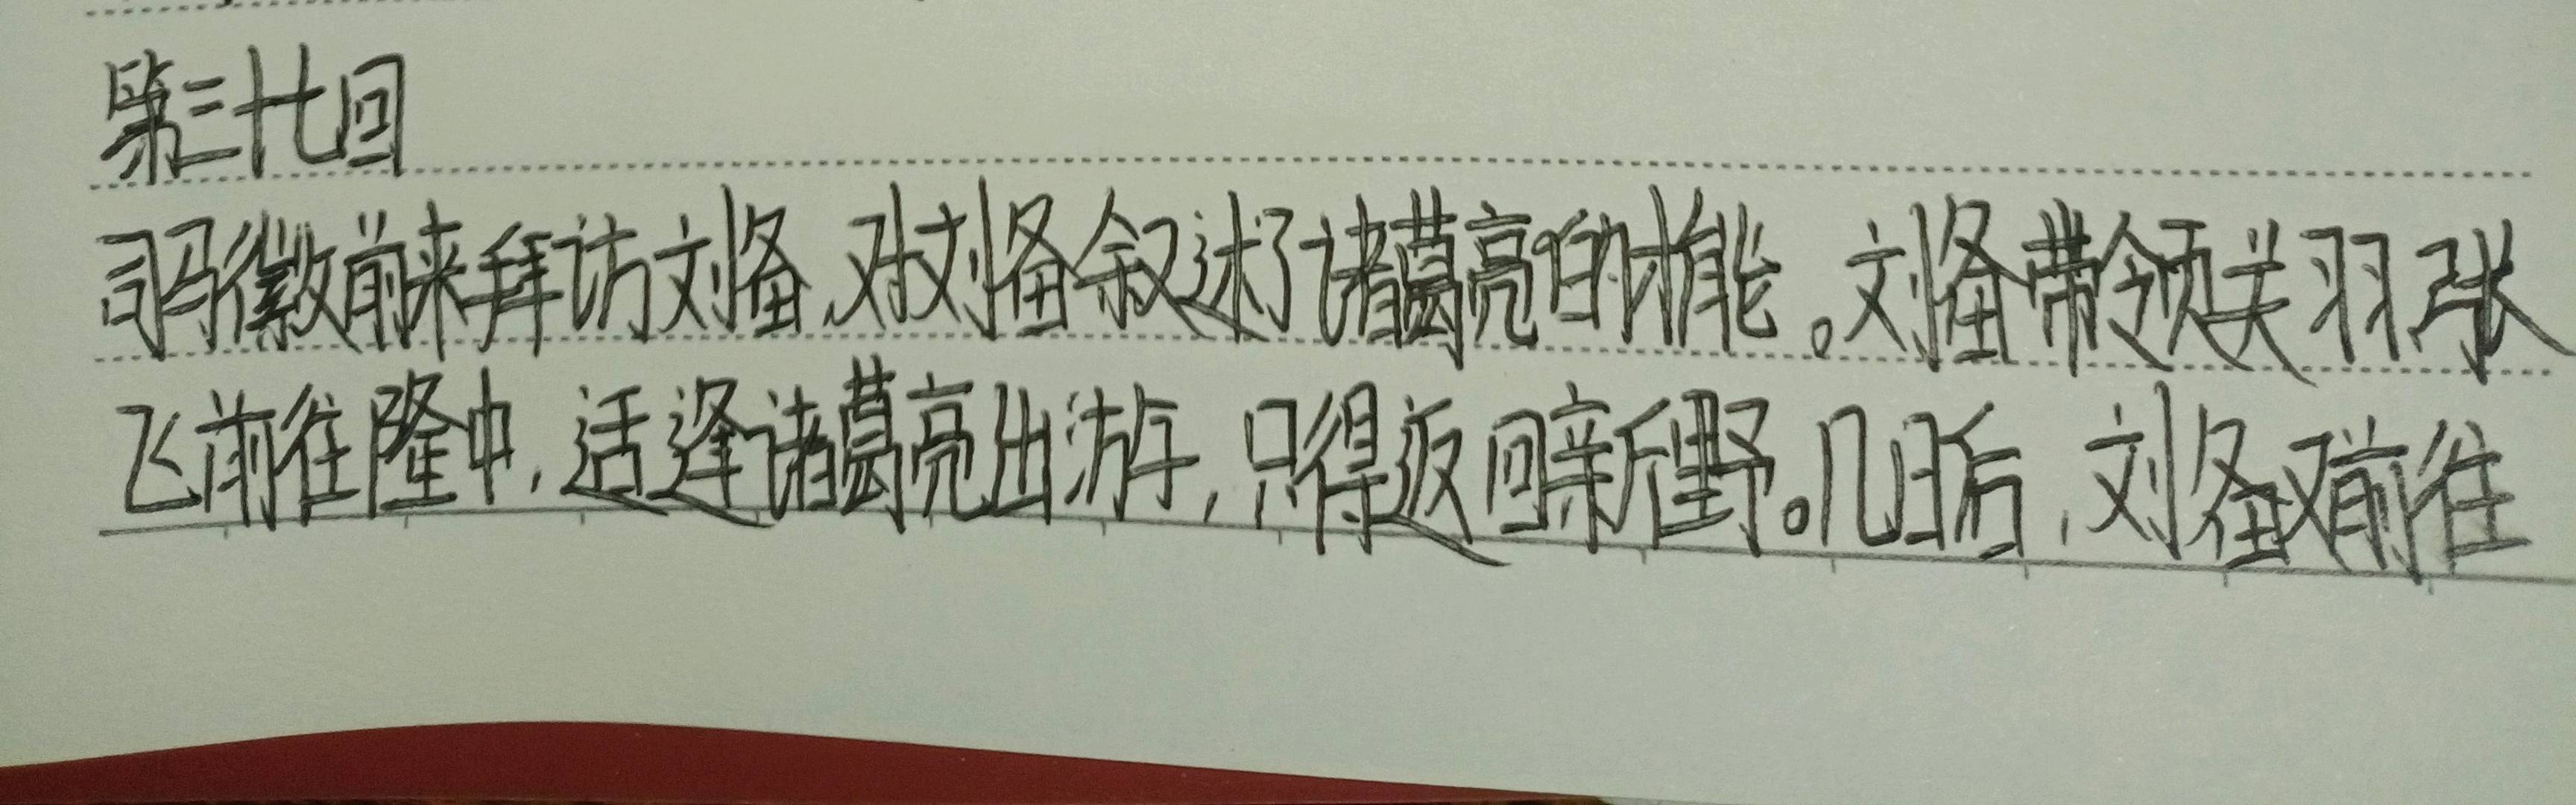 第三十七回
司马徽前来拜访刘备,对刘备叙述了诸葛亮的才能。刘备带领关羽张
飞前往隆中,适逢诸葛亮出游,只得返回新野。几日后,刘备又前往